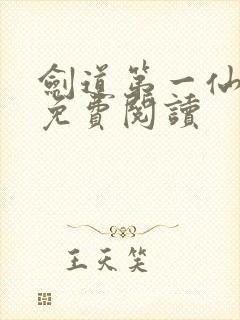 劍道第一仙
免費閱讀
王天笑